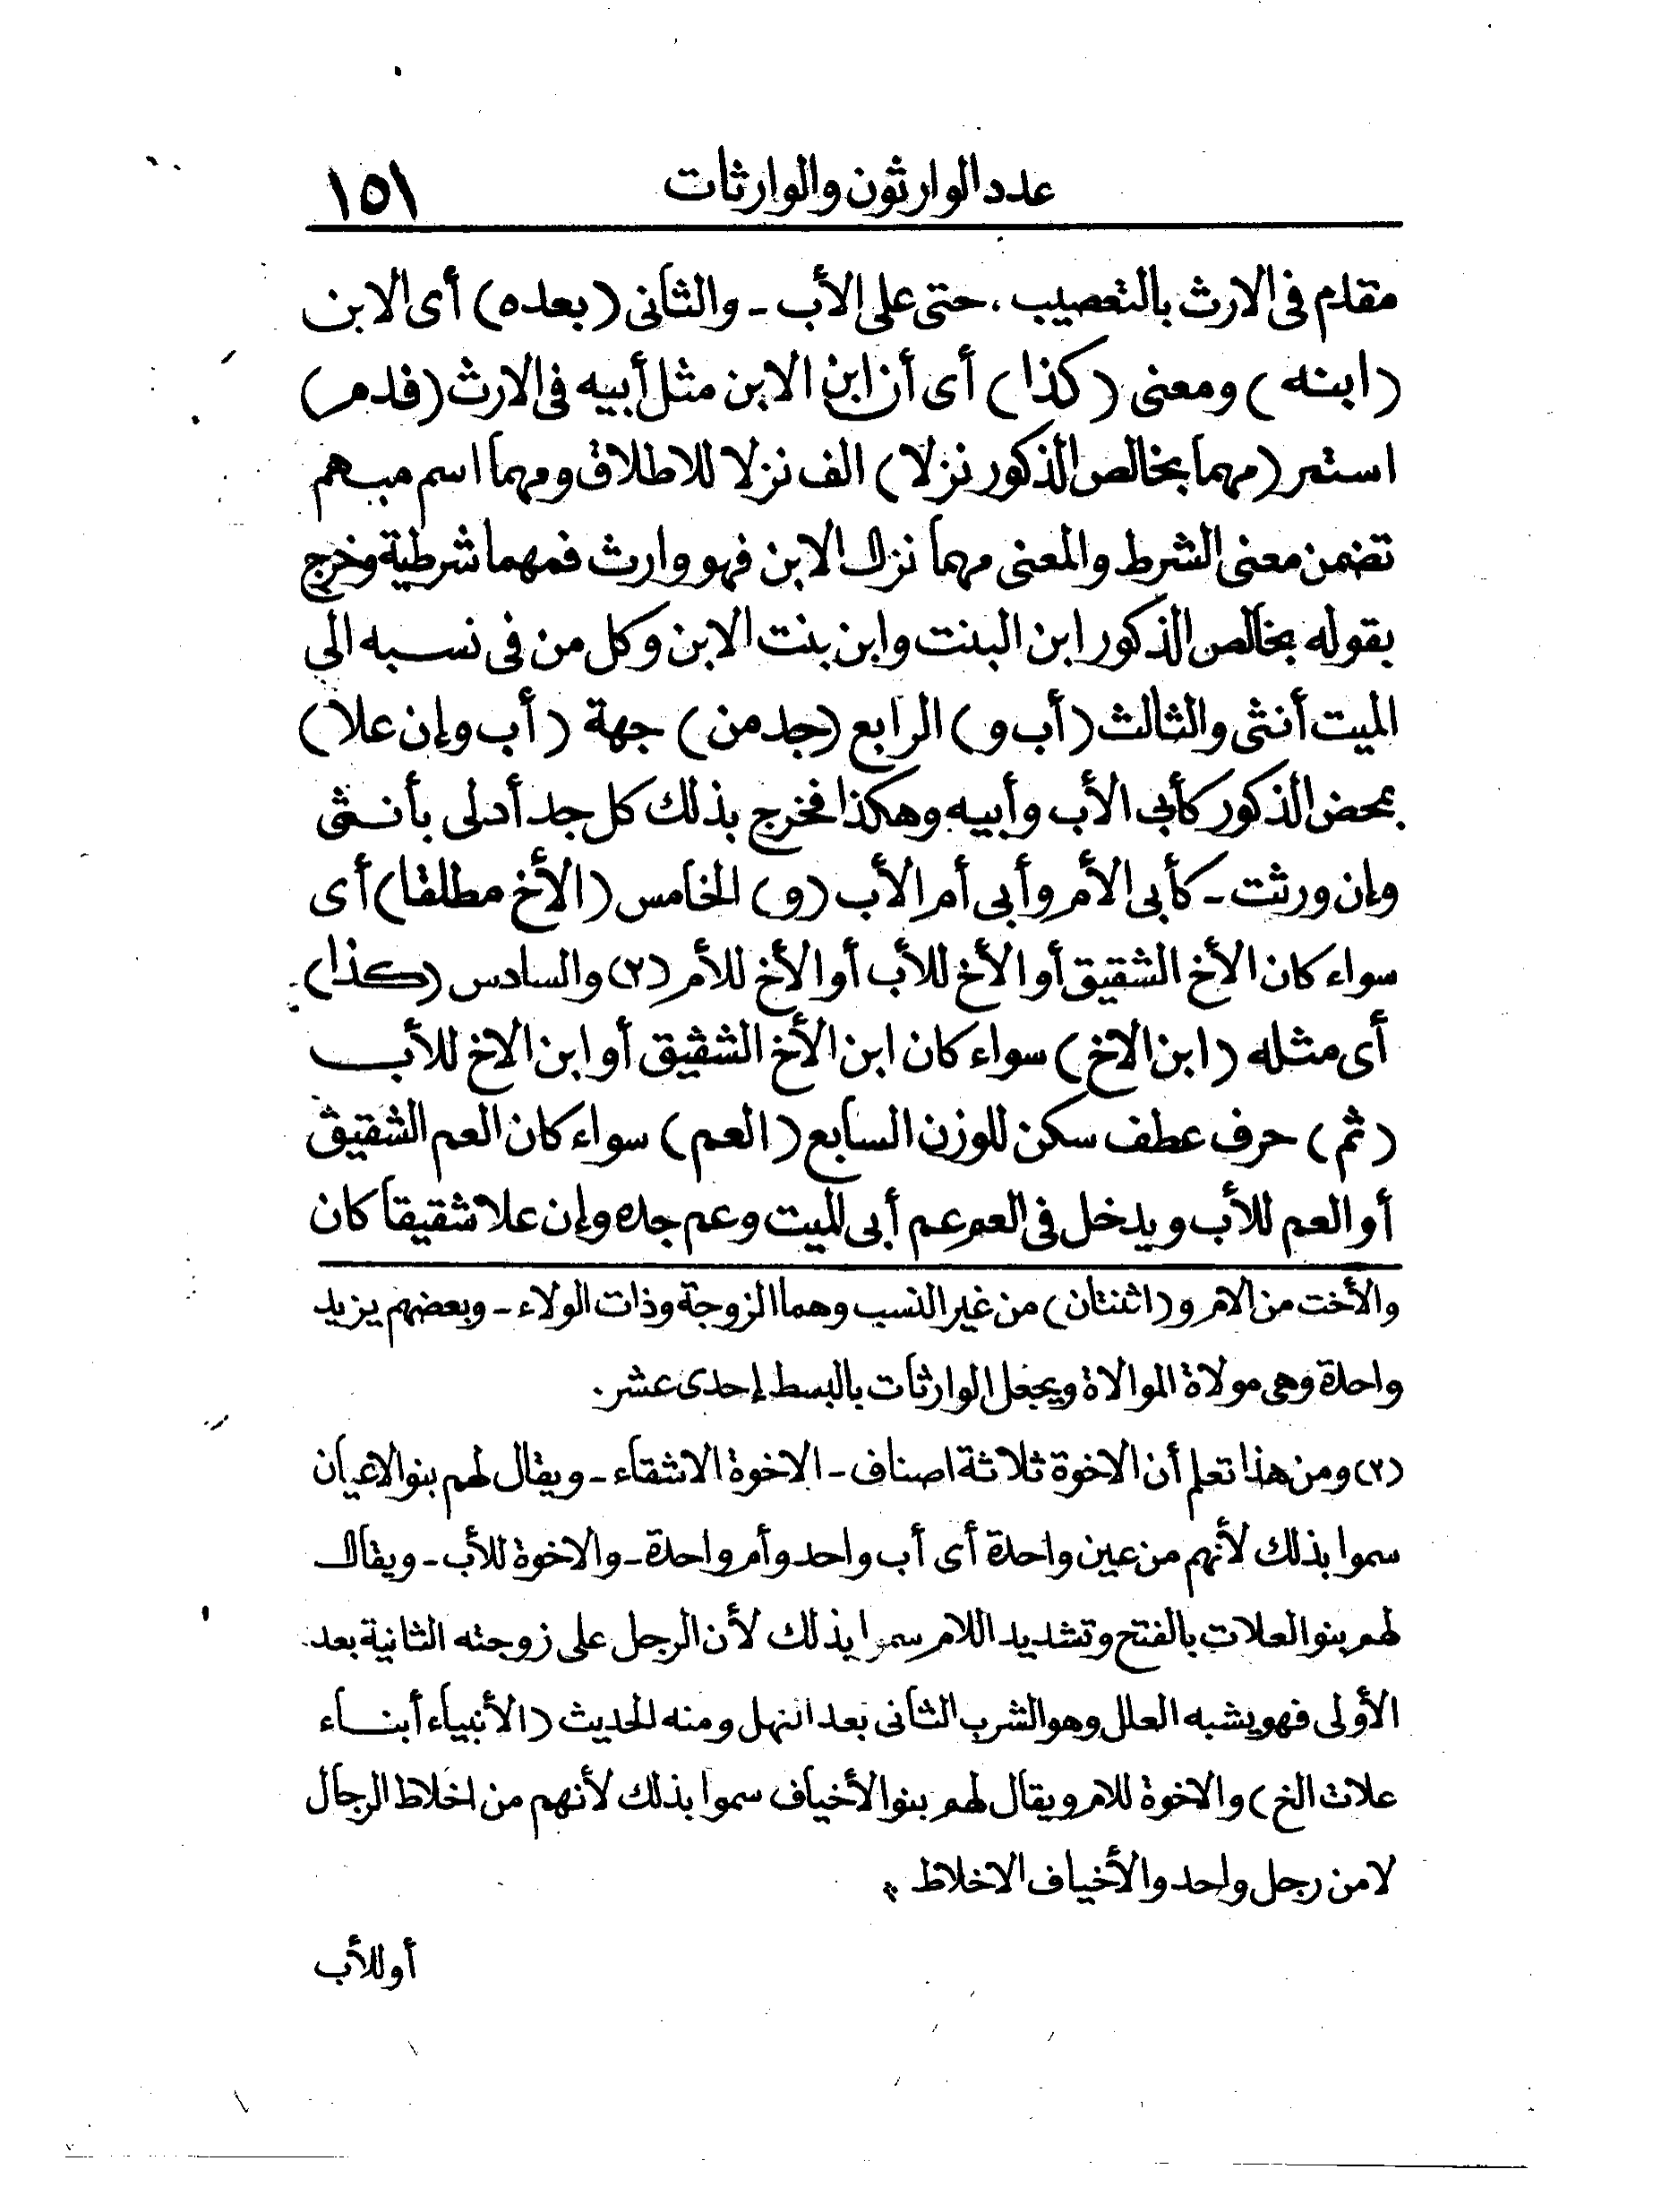 عدد الوارثون والوارثات ١٥١
مقدم فى الارث بالتعصيب ، حتى على الأب ـ والثانى (بعده) أى الابن
(ابنه) ومعنى (كذا) أى أن ابن الابن مثل أبيه فى الارث (قدم)
استمر (مهما بخالص الذكور نزلا) الف نزلا للاطلاق ومهما اسم مبهم
تضمن معنى الشرط والمعنى مهما نزل الابن فهو وارث فمهما شرطية وخرج
بقوله بخالص الذكور ابن البنت وابن بنت الابن وكل من فى نسبه الى
الميت أنثى والثالث (أب و) الرابع (جد من) جهة (أب وإن علا)
بمحض الذكور كأبى الأب وأبيه وهكذا فخرج بذلك كل جد أدلى بأنثى
وإن ورثت ـ كأبى الأم وأبى أم الأب (و) الخامس (الأخ مطلقا) أى
سواء كان الأخ الشقيق أو الأخ للأب أو الأخ للأم (٢) والسادس (كذا)
أى مثله (ابن الاخ) سواء كان ابن الأخ الشقيق أو ابن الاخ للأب
(ثم) حرف عطف سكن للوزن السابع (العم) سواء كان العم الشقيق
أو العم للأب ويدخل فى العم عم أبى الميت وعم جده وإن علا شقيقا كان
والأخت من الام و (اثنتان) من غير النسب وهما الزوجة وذات الولاء ـ وبعضهم يزيد
واحدة وهى مولاة الموالاة ويجعل الوارثات بالبسط إحدى عشر .
(٢) ومن هذا تعلم أن الاخوة ثلاثة اصناف ـ الاخوة الاشقاء ـ ويقال لهم بنو الاعيان
سموا بذلك لأنهم من عين واحدة أى أب واحد وأم واحدة ـ والاخوة للأب ـ ويقال
لهم بنو العلات بالفتح وتشديد اللام سموا بذلك لأن الرجل على زوجته الثانية بعد
الأولى فهو يشبه العلل وهو الشرب الثانى بعد النهل ومنه الحديث (الأنبياء أبناء
علات الخ) والاخوة للام ويقال لهم بنو الأخياف سموا بذلك لأنهم من اخلاط الرجال
لا من رجل واحد والأخياف الاخلاط
أو للأب